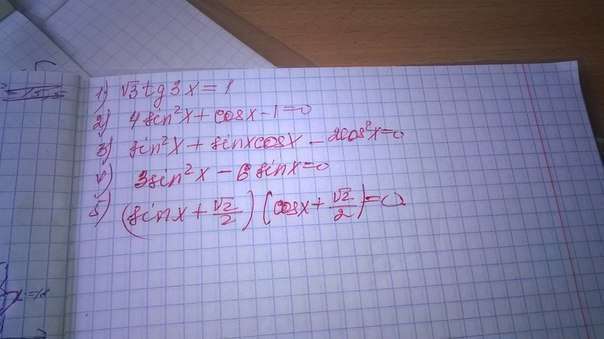 1) √3 tg 3x = 1
2) 4 sin²x + cosx - 1 = 0
3) sin²x + sinxcosx - 2cos²x = 0
4) 3sin²x - 6 sinx = 0
5) (sinx + √2/2) (cosx + √2/2) = 0